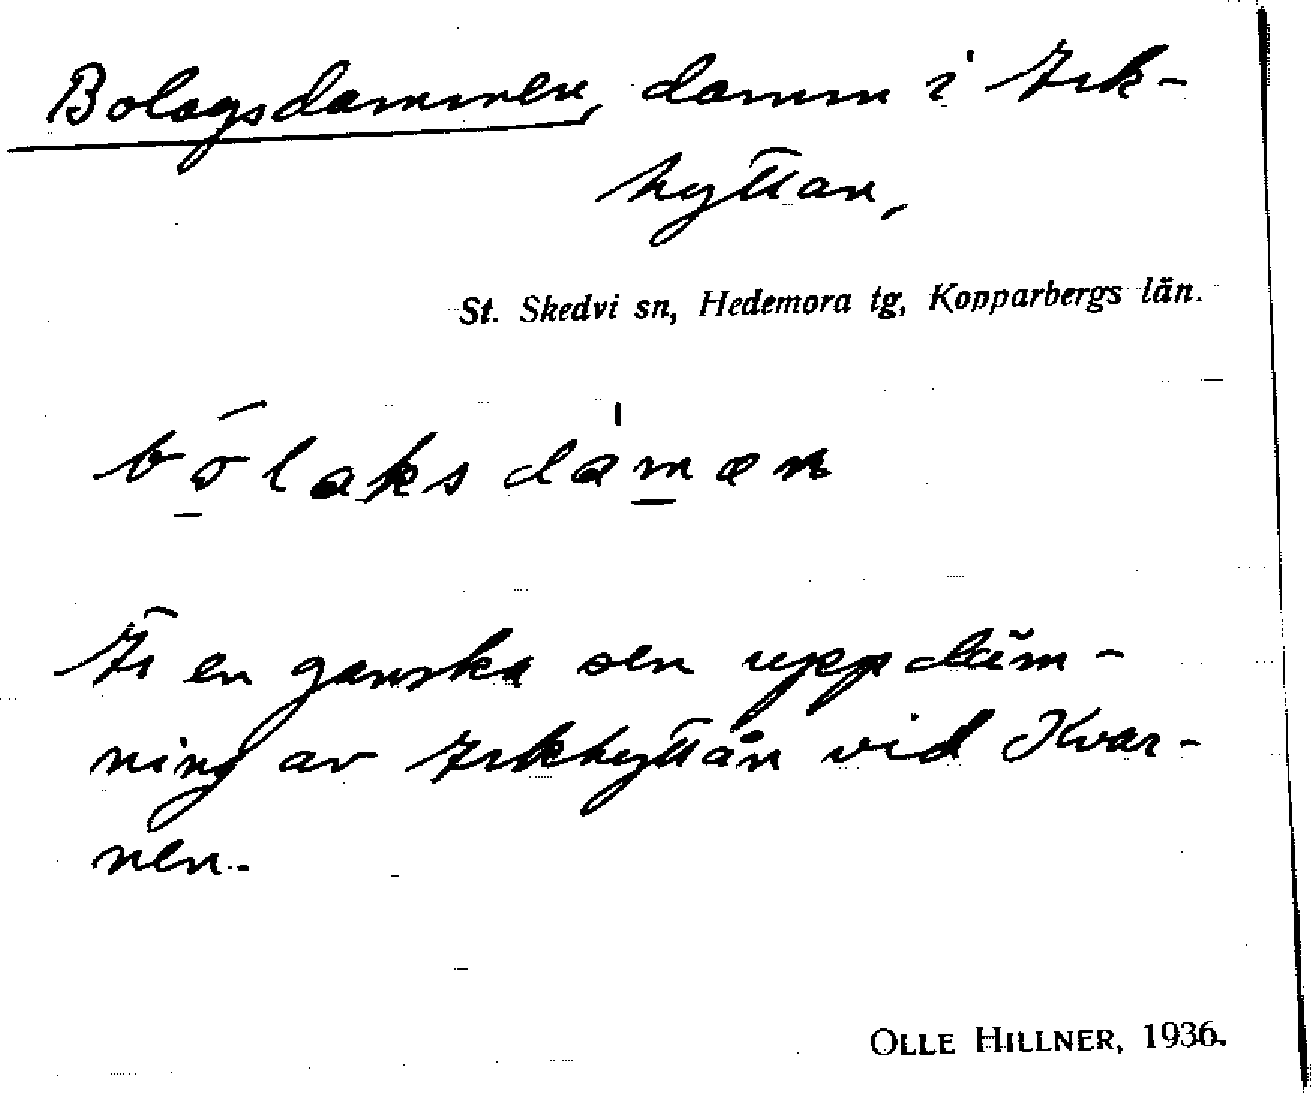 Bolagsdammen, damm i Ark-
hyttan,
St. Skedvi sn, Hedemora tg, Kopparbergs län.
bōlaksdàmæn
Är en ganska sen uppdäm-
ning av Arkhyttån vid Kvar-
nen.
OLLE HILLNER, 1936.